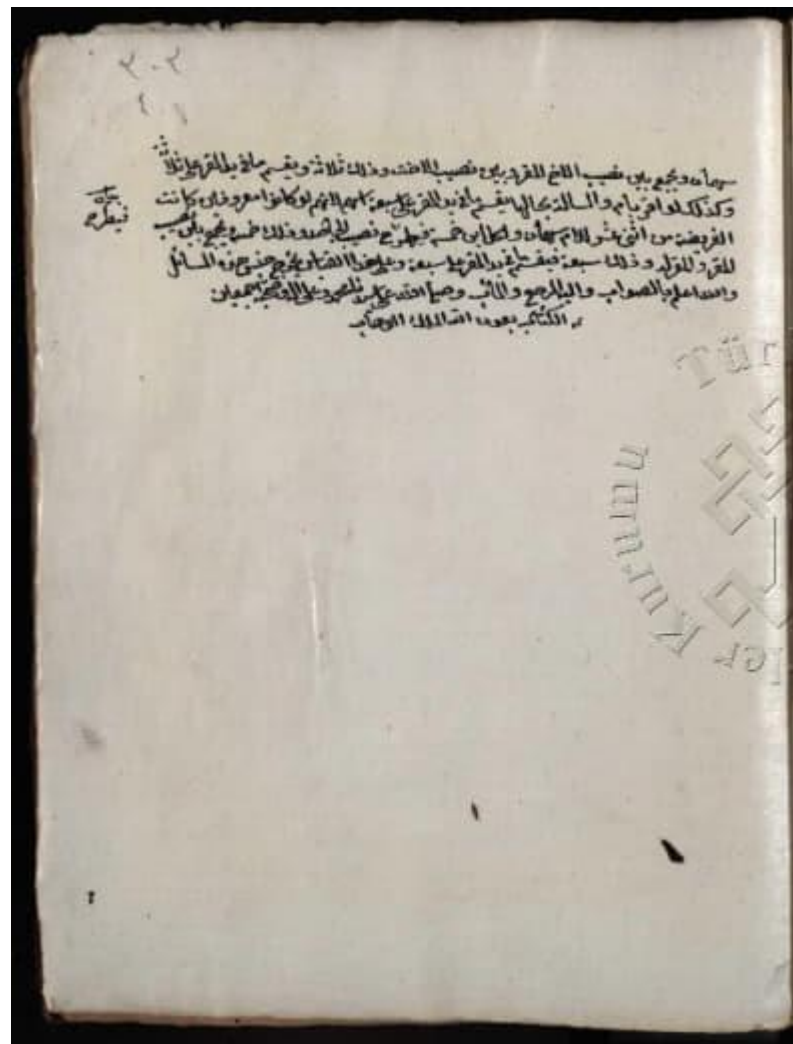 ٣٠٣
سهمان ويجمع بين نصيب الاخ المقر وبين نصيب الاخت وذلك ثلاثة ويقسم ما في يد المقر على ثلاثة
وكذلك لو اقر بام والمسألة بحالها يقسم ما في يد المقر على سبعة اسهم لانهم لو كانوا معروفين كانت
الفريضة من اثنى عشر للام سهمان ولكل ابن خمسة فيطرح نصيب الجاحد وذلك خمسة ويجمع بين نصيب
المقر والمقر له وذلك سبعة فيقسم ما في يد المقر على سبعة وعلى هذا القياس يخرج جنس هذه المسائل
والله اعلم بالصواب واليه المرجع والمآب وصلى الله على وعلى اله وصحبه اجمعين
تم الكتاب بعون الله الملك الوهاب
فيطرح